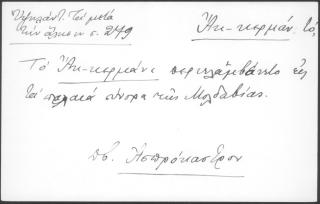 Ὑψηλάντ. Τὰ μετὰ
τὴν ἅλωσιν σ. 279
Ἀκ-κερμάν, τό,
Τὸ Ἀκ-κερμάνι περιελαμβάνετο εἰς
τὰ παλαιὰ σύνορα τῆς Μολδαβίας.
πβ. Ἀσπρόκαστρον